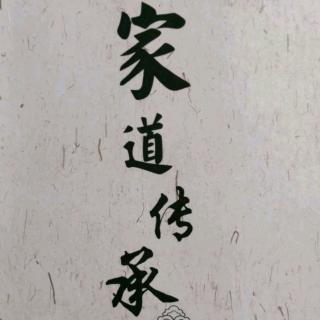 家道传承